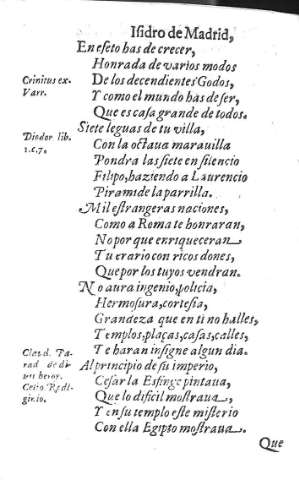 Isidro de Madrid,
En efeto has de crecer,
Honrada de varios modos
Crinitus ex
Varr.
De los decendientes Godos,
Y como el mundo has de ser,
Que es casa grande de todos.
Siete leguas de tu villa,
Diodor lib.
1.c.7.
Con la octaua marauilla
Pondra las siete en silencio
Filipo, haziendo a Laurencio
Piramide la parrilla.
Mil estrangeras naciones,
Como a Roma te honraran,
No por que enriqueceran
Tu erario con ricos dones,
Que por los tuyos vendran.
No aura ingenio, policia,
Hermosura, cortesia,
Grandeza que en ti no halles,
Templos, plaças, casas, calles,
Te haran insigne algun dia.
Al principio de su imperio,
Cesar la Esfinge pintaua,
Que lo dificil mostraua,
Y en su templo este misterio
Con ella Egipto mostraua.
Que